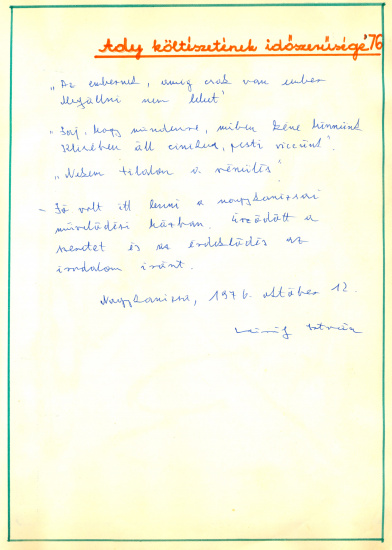 Ady költészetének időszerűsége '76
„Az embernek, amíg csak van ember
Megállni nem lehet"
„Jaj, hogy mindenre, miben kéne hinnünk
Készében áll cinikus, pesti viccünk".
„Nekem tilalom a vénülés"
– Jó volt itt lenni a nagykanizsai
művelődési házban. Érződött a
szeretet és az érdeklődés az
irodalom iránt.
Nagykanizsa, 1976. október 12.
István